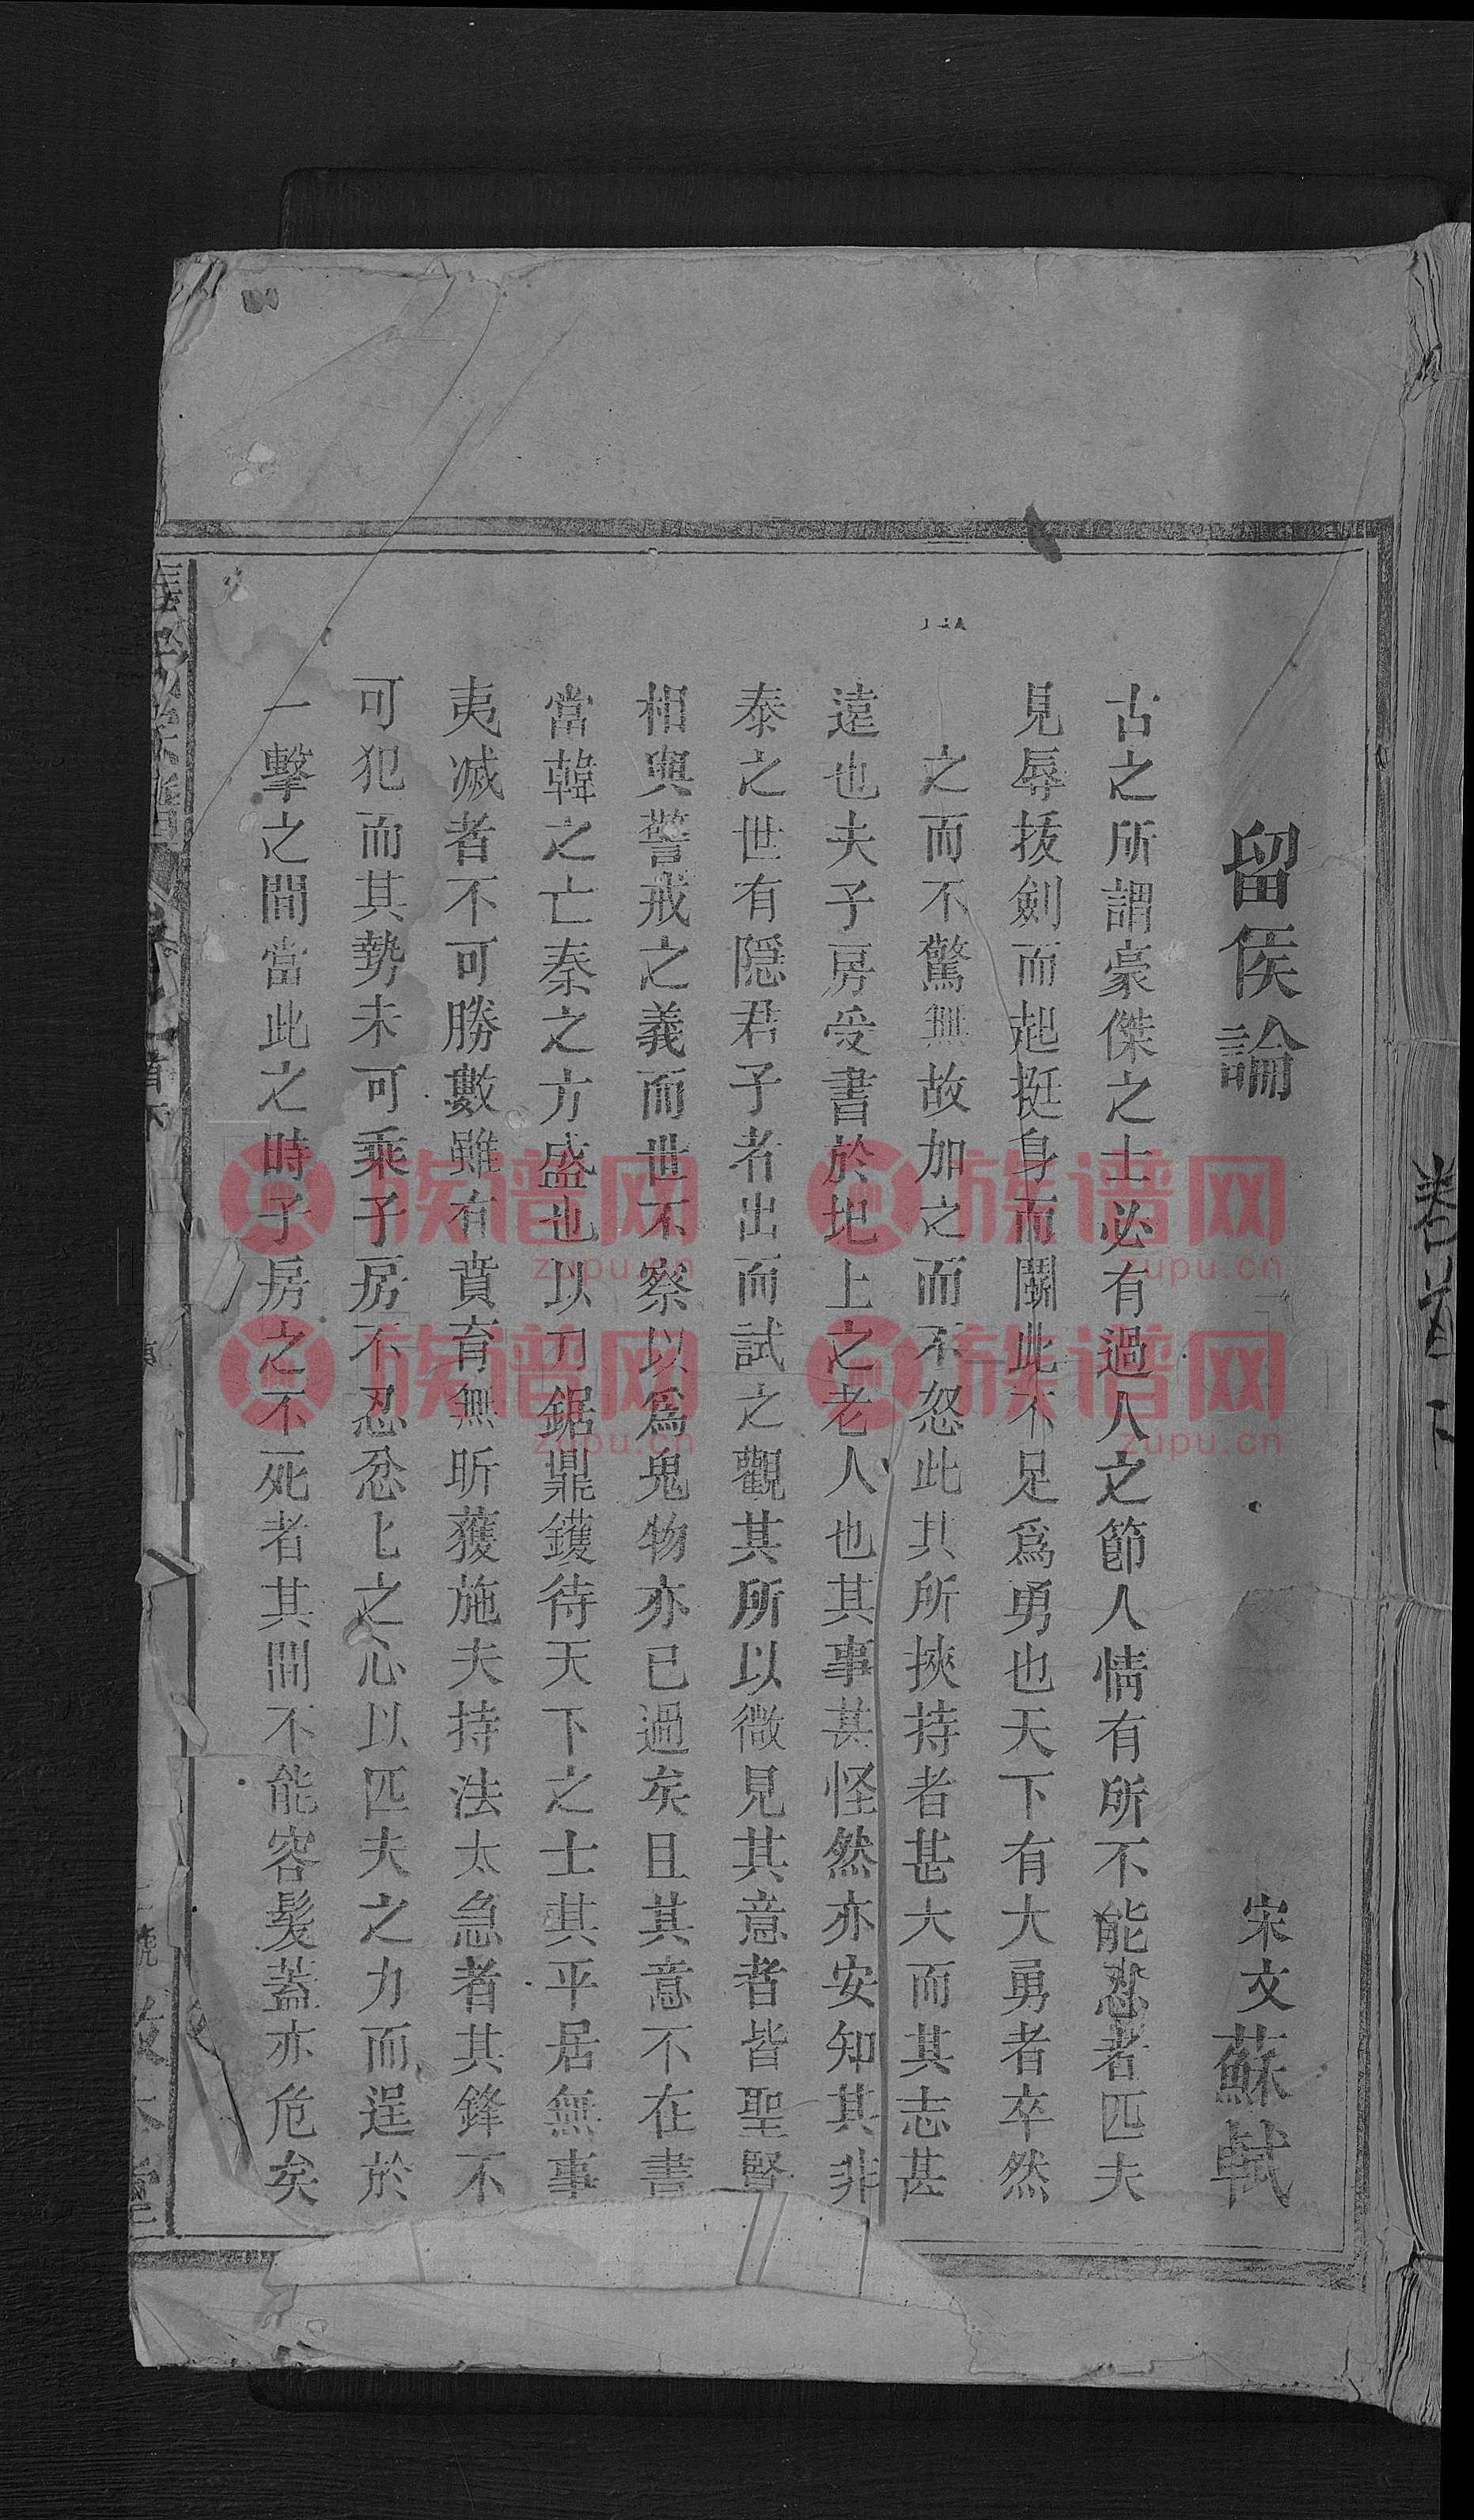 留侯論
宋文蘇軾
古之所謂豪傑之士必有過人之節人情有所不能忍者匹夫
見辱拔劍而起挺身而鬬此不足爲勇也天下有大勇者卒然
之而不驚無故加之而不怒此其所挾持者甚大而其志甚
遠也夫子房受書於圯上之老人也其事甚怪然亦安知其非
泰之世有隱君子者出而試之觀其所以微見其意者皆聖賢
相與警戒之義而世不察以爲鬼物亦已過矣且其意不在書
當韓之亡秦之方盛也以刀鋸鼎鑊待天下之士其平居無事
夷滅者不可勝數雖有賁育無昕獲施夫持法太急者其鋒不
可犯而其勢未可乘子房不忍忿上之心以匹夫之力而逞於
一擊之間當此之時子房之不死者其間不能容髮蓋亦危矣
卷首下
族谱网
zupu.cn
族谱网
zupu.cn
族谱网
zupu.cn
族谱网
zupu.cn